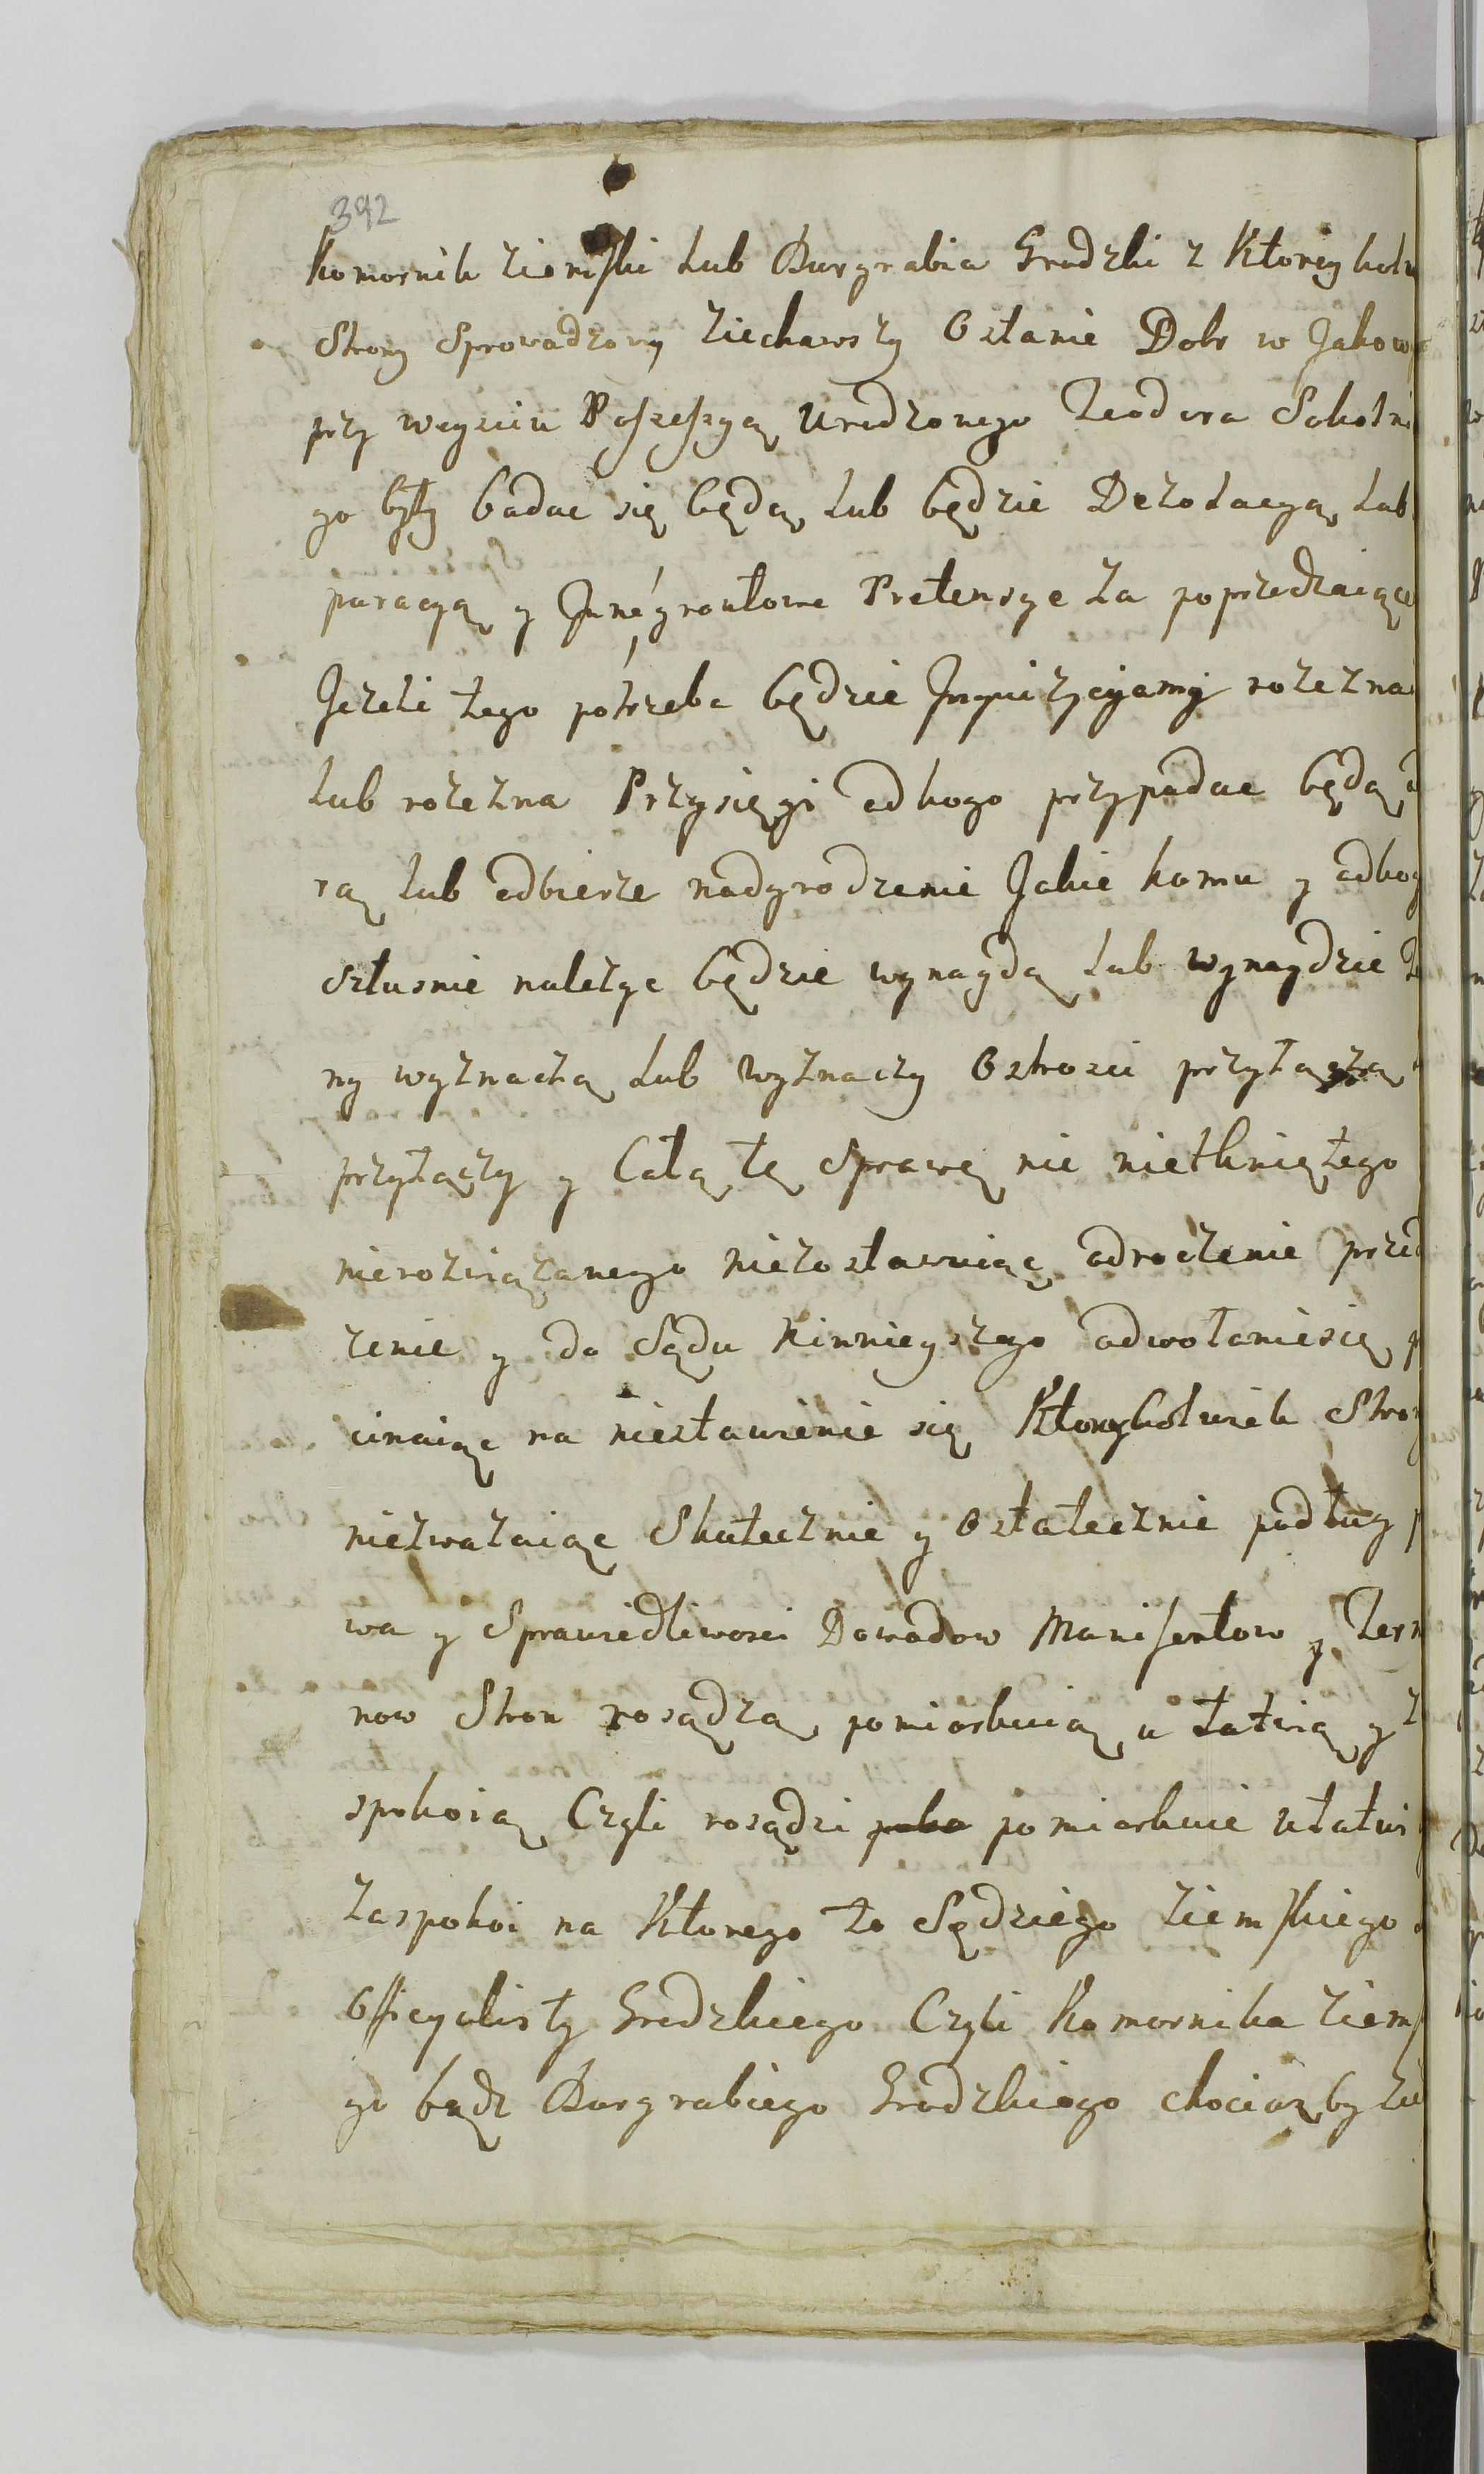 392
Komornik ziemski lub Burgrabia Grodzki z Ktorey kolw
Strony Sprowadzony ziechawszy Ostanie Dobr w Jakow
przy weysciu Possessyą Urodzonego Teodora Sokolni
go były badac się będą lub będzie Dezolacyą lub
paracyą y Inne gruntowe Pretensye za poprzedzaiące
Jezeli tego potrzeba będzie Jnquizycyami rozezna
lub rozezna Przysięgi odkogo przypadac będą
rą lub odbierze nadgrodzenie Jakie komu y odkog
szłusnie należyc będzie wynaydą lub wynaydzie
ny wyznaczą lub wyznaczy Ostrosci przyłączą
przyłączy y Całą tę Sprawę nic nietknięte̶go
nierozwiązanego niezostawuiąc odroczenie prze
zenie y do Sądu Ninnieyszego odwołaniesię
cinaiąc na niestawienie się Ktoregkolwiek Stro
niezwazaiąc Skutecznie y Ostatecznie podług
wa y Sprawiedliwosci Dowodow Manifestow y Ter
now Stron rosądzą pomiarkuią ułatwią y
spokoią Czyli rosądzi pomiarkuie ułatwi
zaspokoi na Ktorego to Sędziego ziemskiego
Officyalisty Grodzkiego Czyli Komornika ziem
go bądz Burgrabiego Grodzkiego chociazby